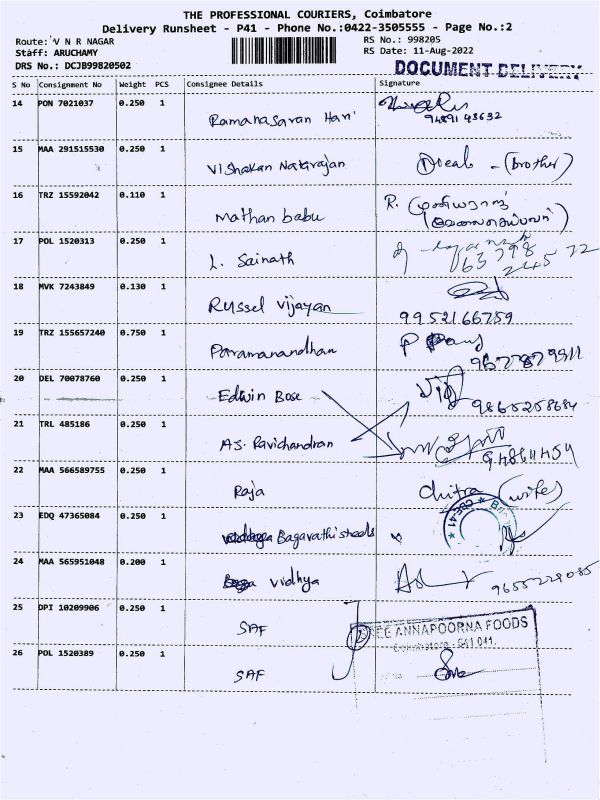 THE PROFESSIONAL COURIERS, Coimbatore
Delivery Runsheet - P41 - Phone No.:0422-3505555 - Page No.:2
Route: V N R NAGAR
RS No.: 998205
Staff: ARUCHAMY
RS Date: 11-Aug-2022
DRS No.: DCJB99820502
DOCUMENT DELIVERY
S No Consignment No Weight PCS Consignee Details Signature
14 PON 7021037 0.250 1 Ramanasaran Hari
94891 43632
15 MAA 291515530 0.250 1 Vishakan Natarajan (brother)
16 TRZ 15592042 0.110 1 Mathan babu R.
17 POL 1520313 0.250 1 L. Sainath
63798
24572
18 MVK 7243849 0.130 1 Russel Vijayan
9952166759
19 TRZ 155657240 0.750 1 Paramanandhan
9677879911
20 DEL 70078760 0.250 1 Edwin Bose
9865258684
21 TRL 485186 0.250 1 A.S. Ravichandran
22 MAA 566589755 0.250 1 Raja Chitra (wife)
23 EDQ 47365084 0.250 1 Bagavathi steels
CBE41
24 MAA 565951048 0.200 1 Vidhya
9655229085
25 DPI 10209906 0.250 1 SAF
SREE ANNAPOORNA FOODS
Coimbatore - 641 041.
26 POL 1520389 0.250 1 SAF